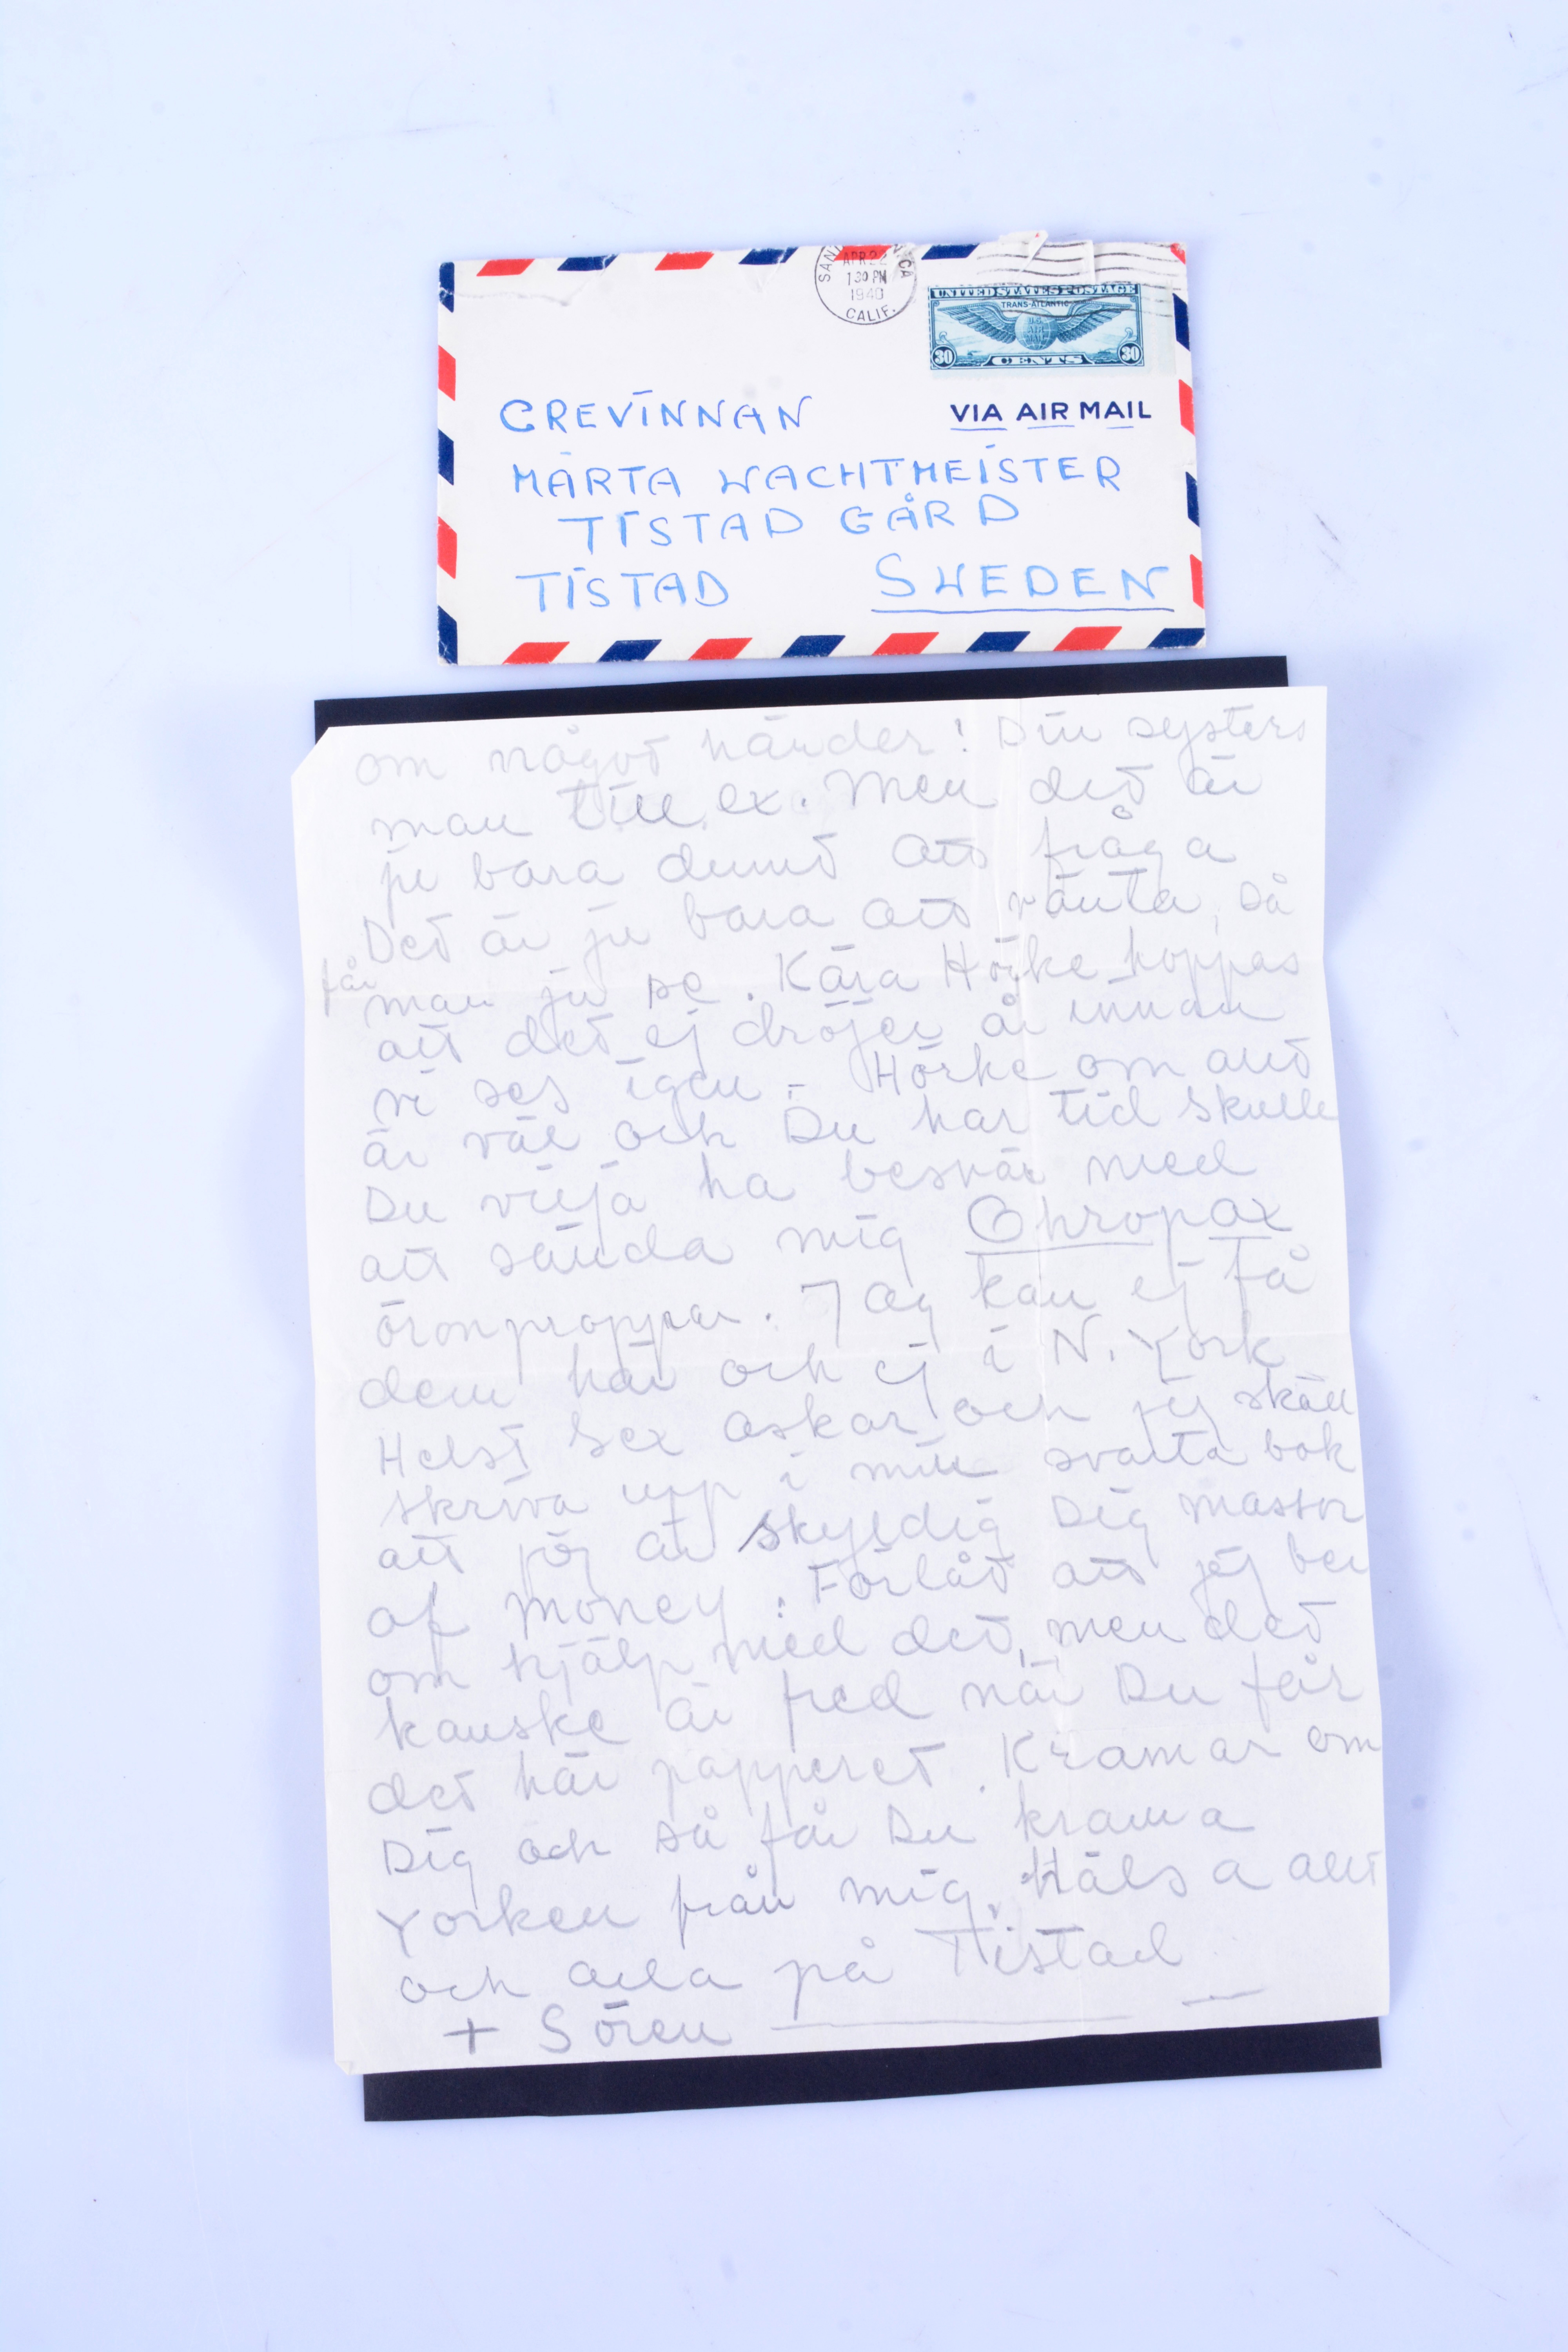 SAN CA
APR 2
1 30 PM
1940
CALIF.
UNITED STATES POSTAGE
TRANS-ATLANTIC
U.S.
AIR
MAIL
30 CENTS 30
VIA AIR MAIL
GREVINNAN
MÄRTA WACHTMEISTER
TISTAD GÅRD
TISTAD SWEDEN
om något händer! Din systers
man till ex. Men det är
ju bara dumt att fråga
Det är ju bara att vänta, så
får
man ju se. Kära Hörke hoppas
att det ej dröjer år innan
vi ses igen - Hörke om allt
är väl och Du har tid skulle
Du vilja ha besvär med
att sända mig Ohropax
öronproppar. Jag kan ej få
dem här och ej i N. York
Helst sex askar och jej skall
skriva upp i min svatta bok
att jej är skyldig Dig massor
of money. Förlåt att jej ber
om hjälp med det, men det
kanske är fred när Du får
det här papperet. Kramar om
Dig och så får Du krama
Yorken från mig. Hälsa allt
och alla på Tistad
+ Sören